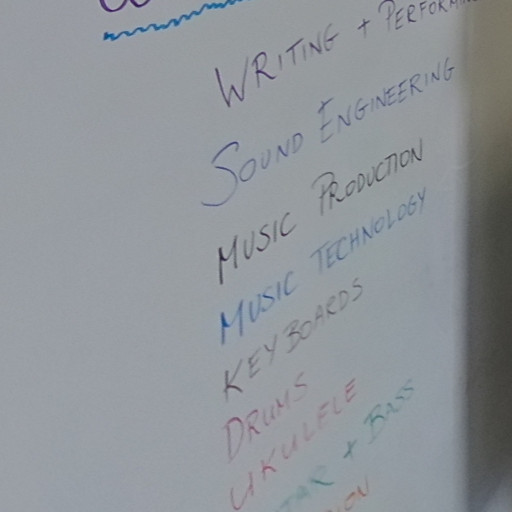 WRITING +
SOUND ENGINEERING
MUSIC PRODUCTION
MUSIC TECHNOLOGY
KEYBOARDS
DRUMS
UKULELE
+ BASS